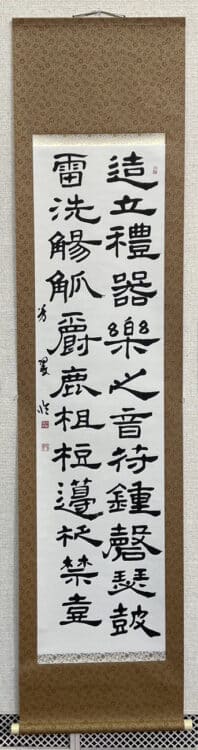 造立禮器樂之音符鍾磬瑟鼓
雷洗觴觚爵鹿柤梪籩柉禁壺
臨